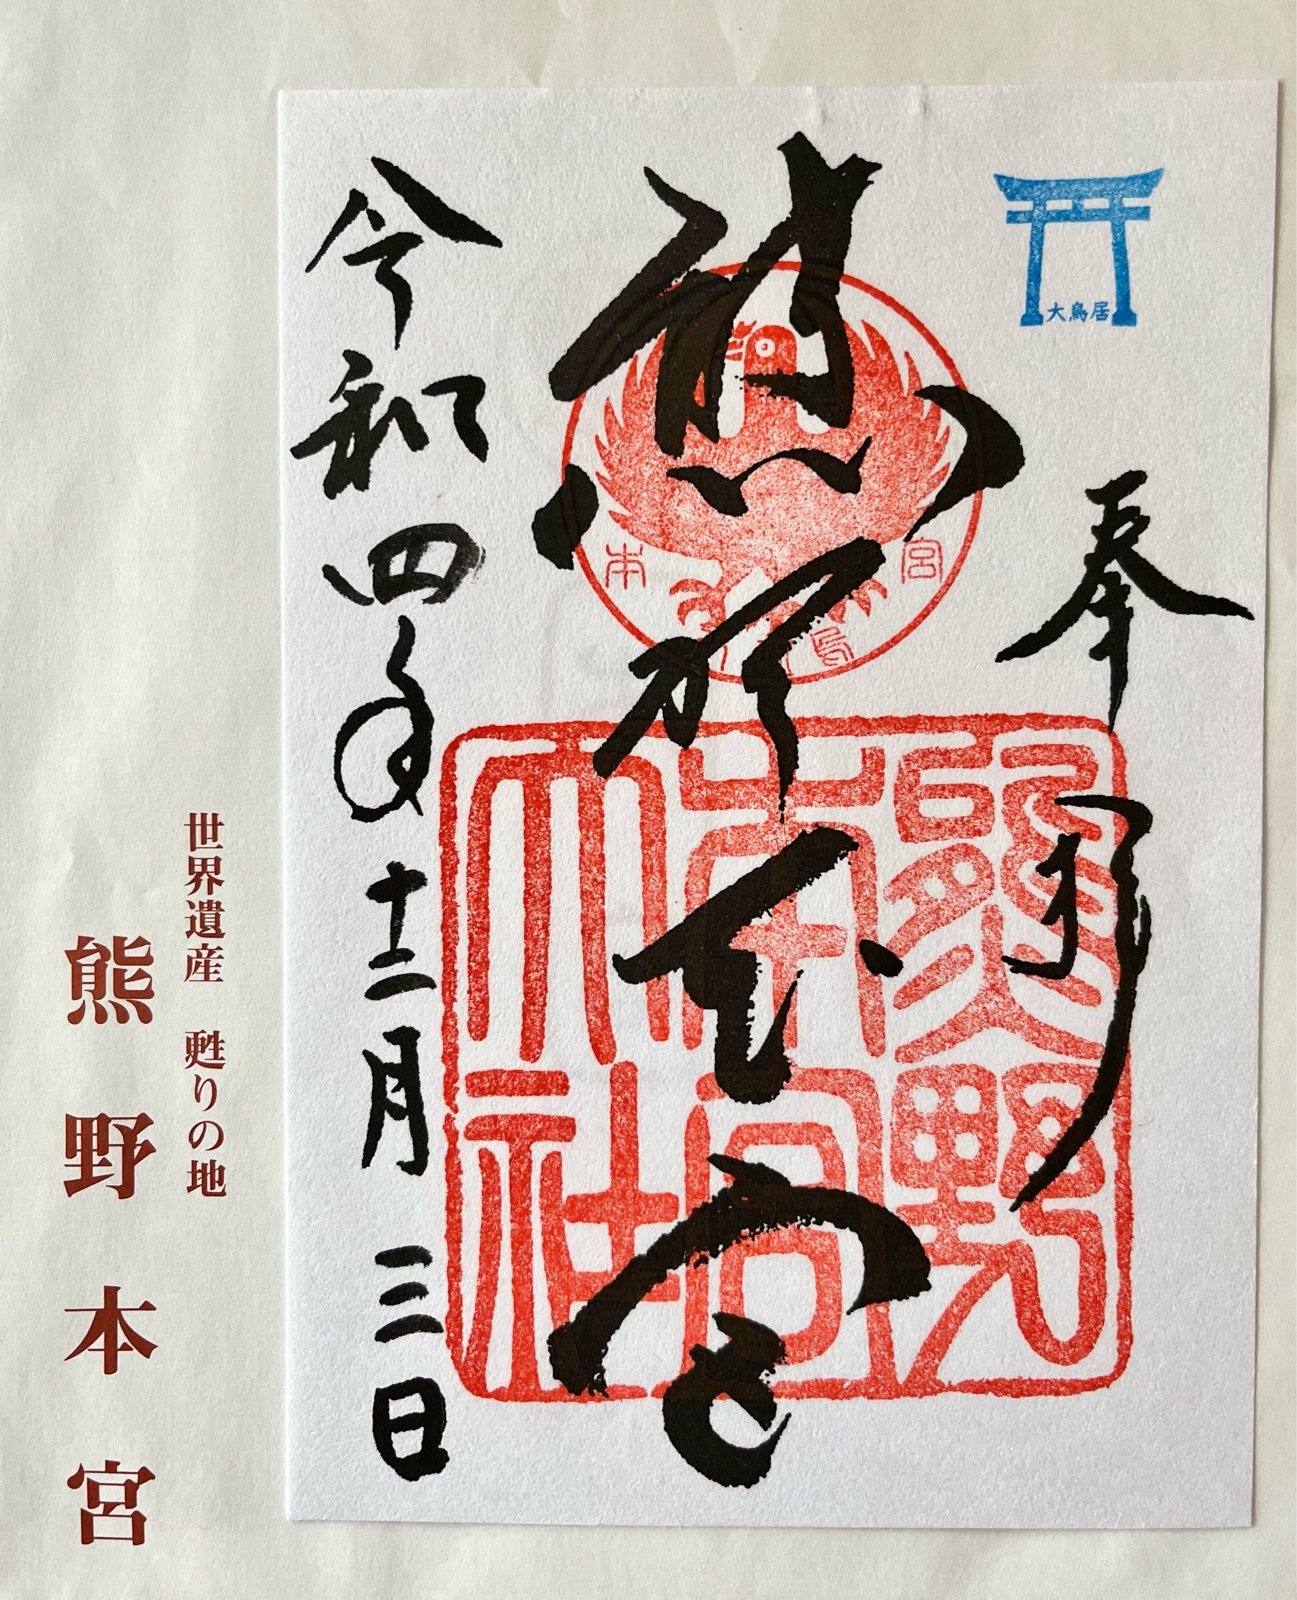 大鳥居
奉拝
熊野本宮
本宮
熊野
本宮
大社
令和四年十二月三日
世界遺産　甦りの地
熊野本宮